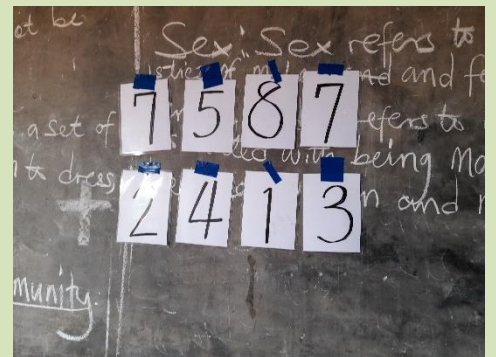 et be
Sex: Sex refers to
and fe
7 5 8 7
a set of efers to
with being Ma
to dress
2 4 1 3
n and
+
munity.